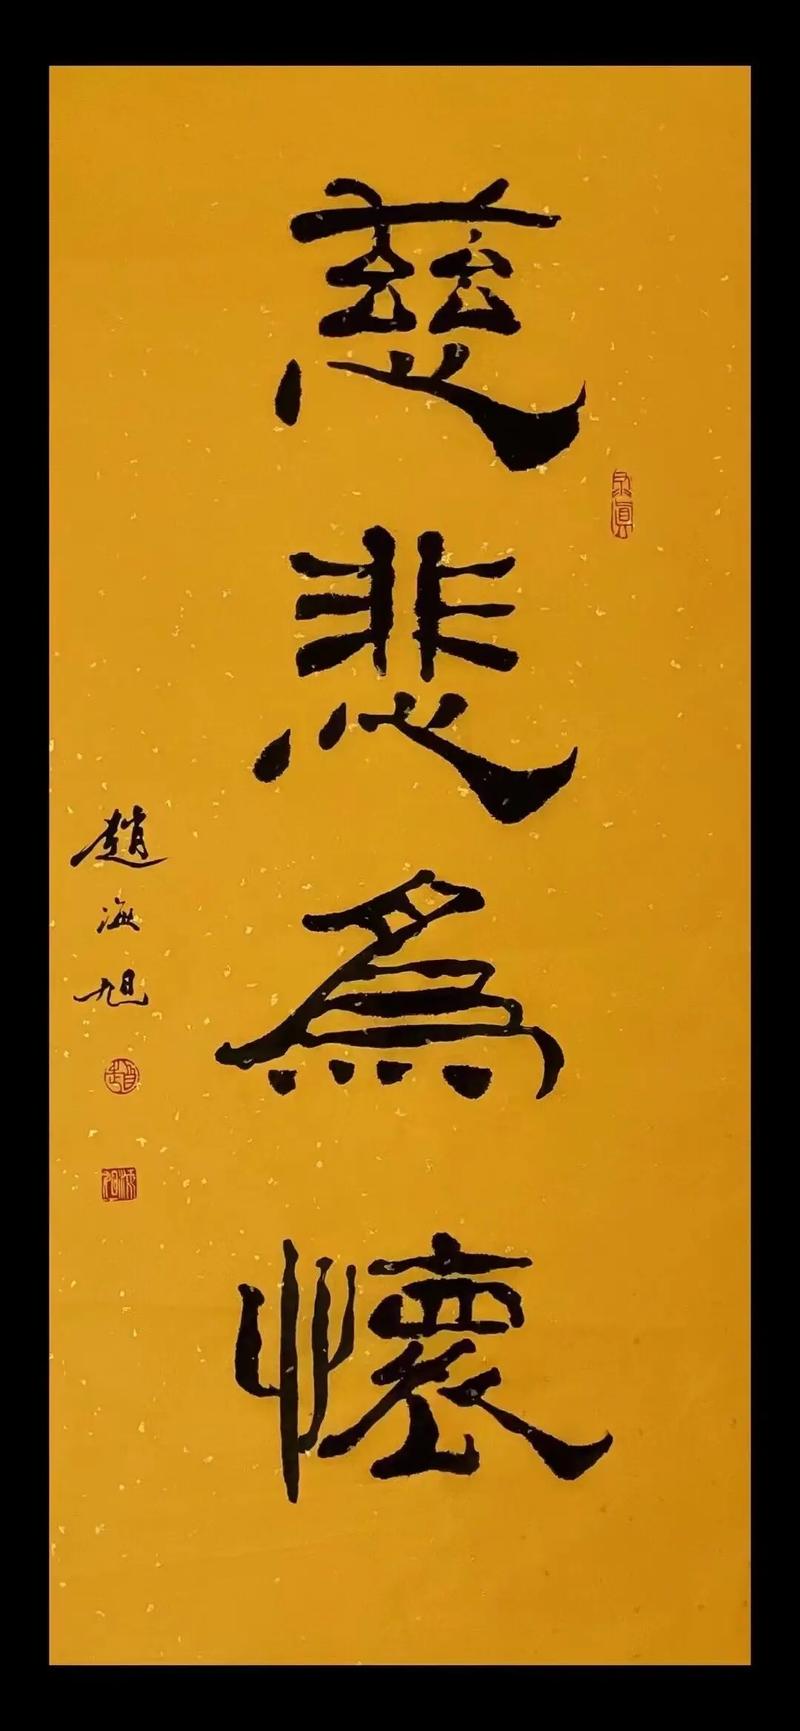 慈悲為懷
趙海旭